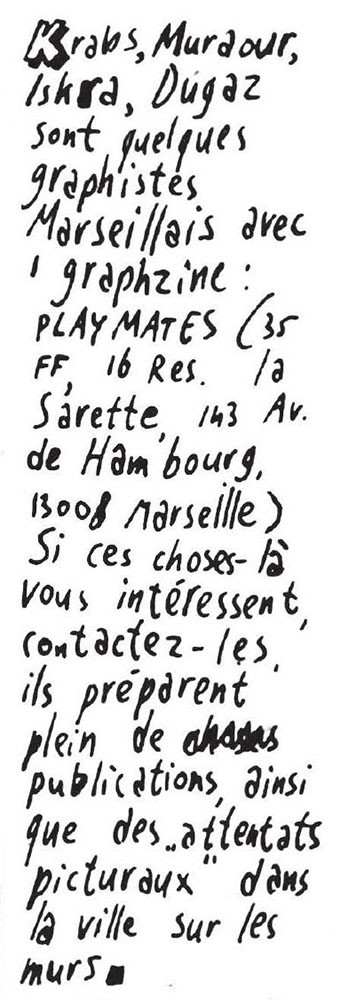 Krabs, Muraour,
Iskra, Dugaz
sont quelques
graphistes
Marseillais avec
1 graphzine :
PLAYMATES (35
FF, 16 Res. la
Sarette, 143 Av.
de Hambourg,
13008 Marseille)
Si ces choses-là
vous intéressent,
contactez-les,
ils préparent
plein de
publications, ainsi
que des „attentats
picturaux" dans
la ville sur les
murs.